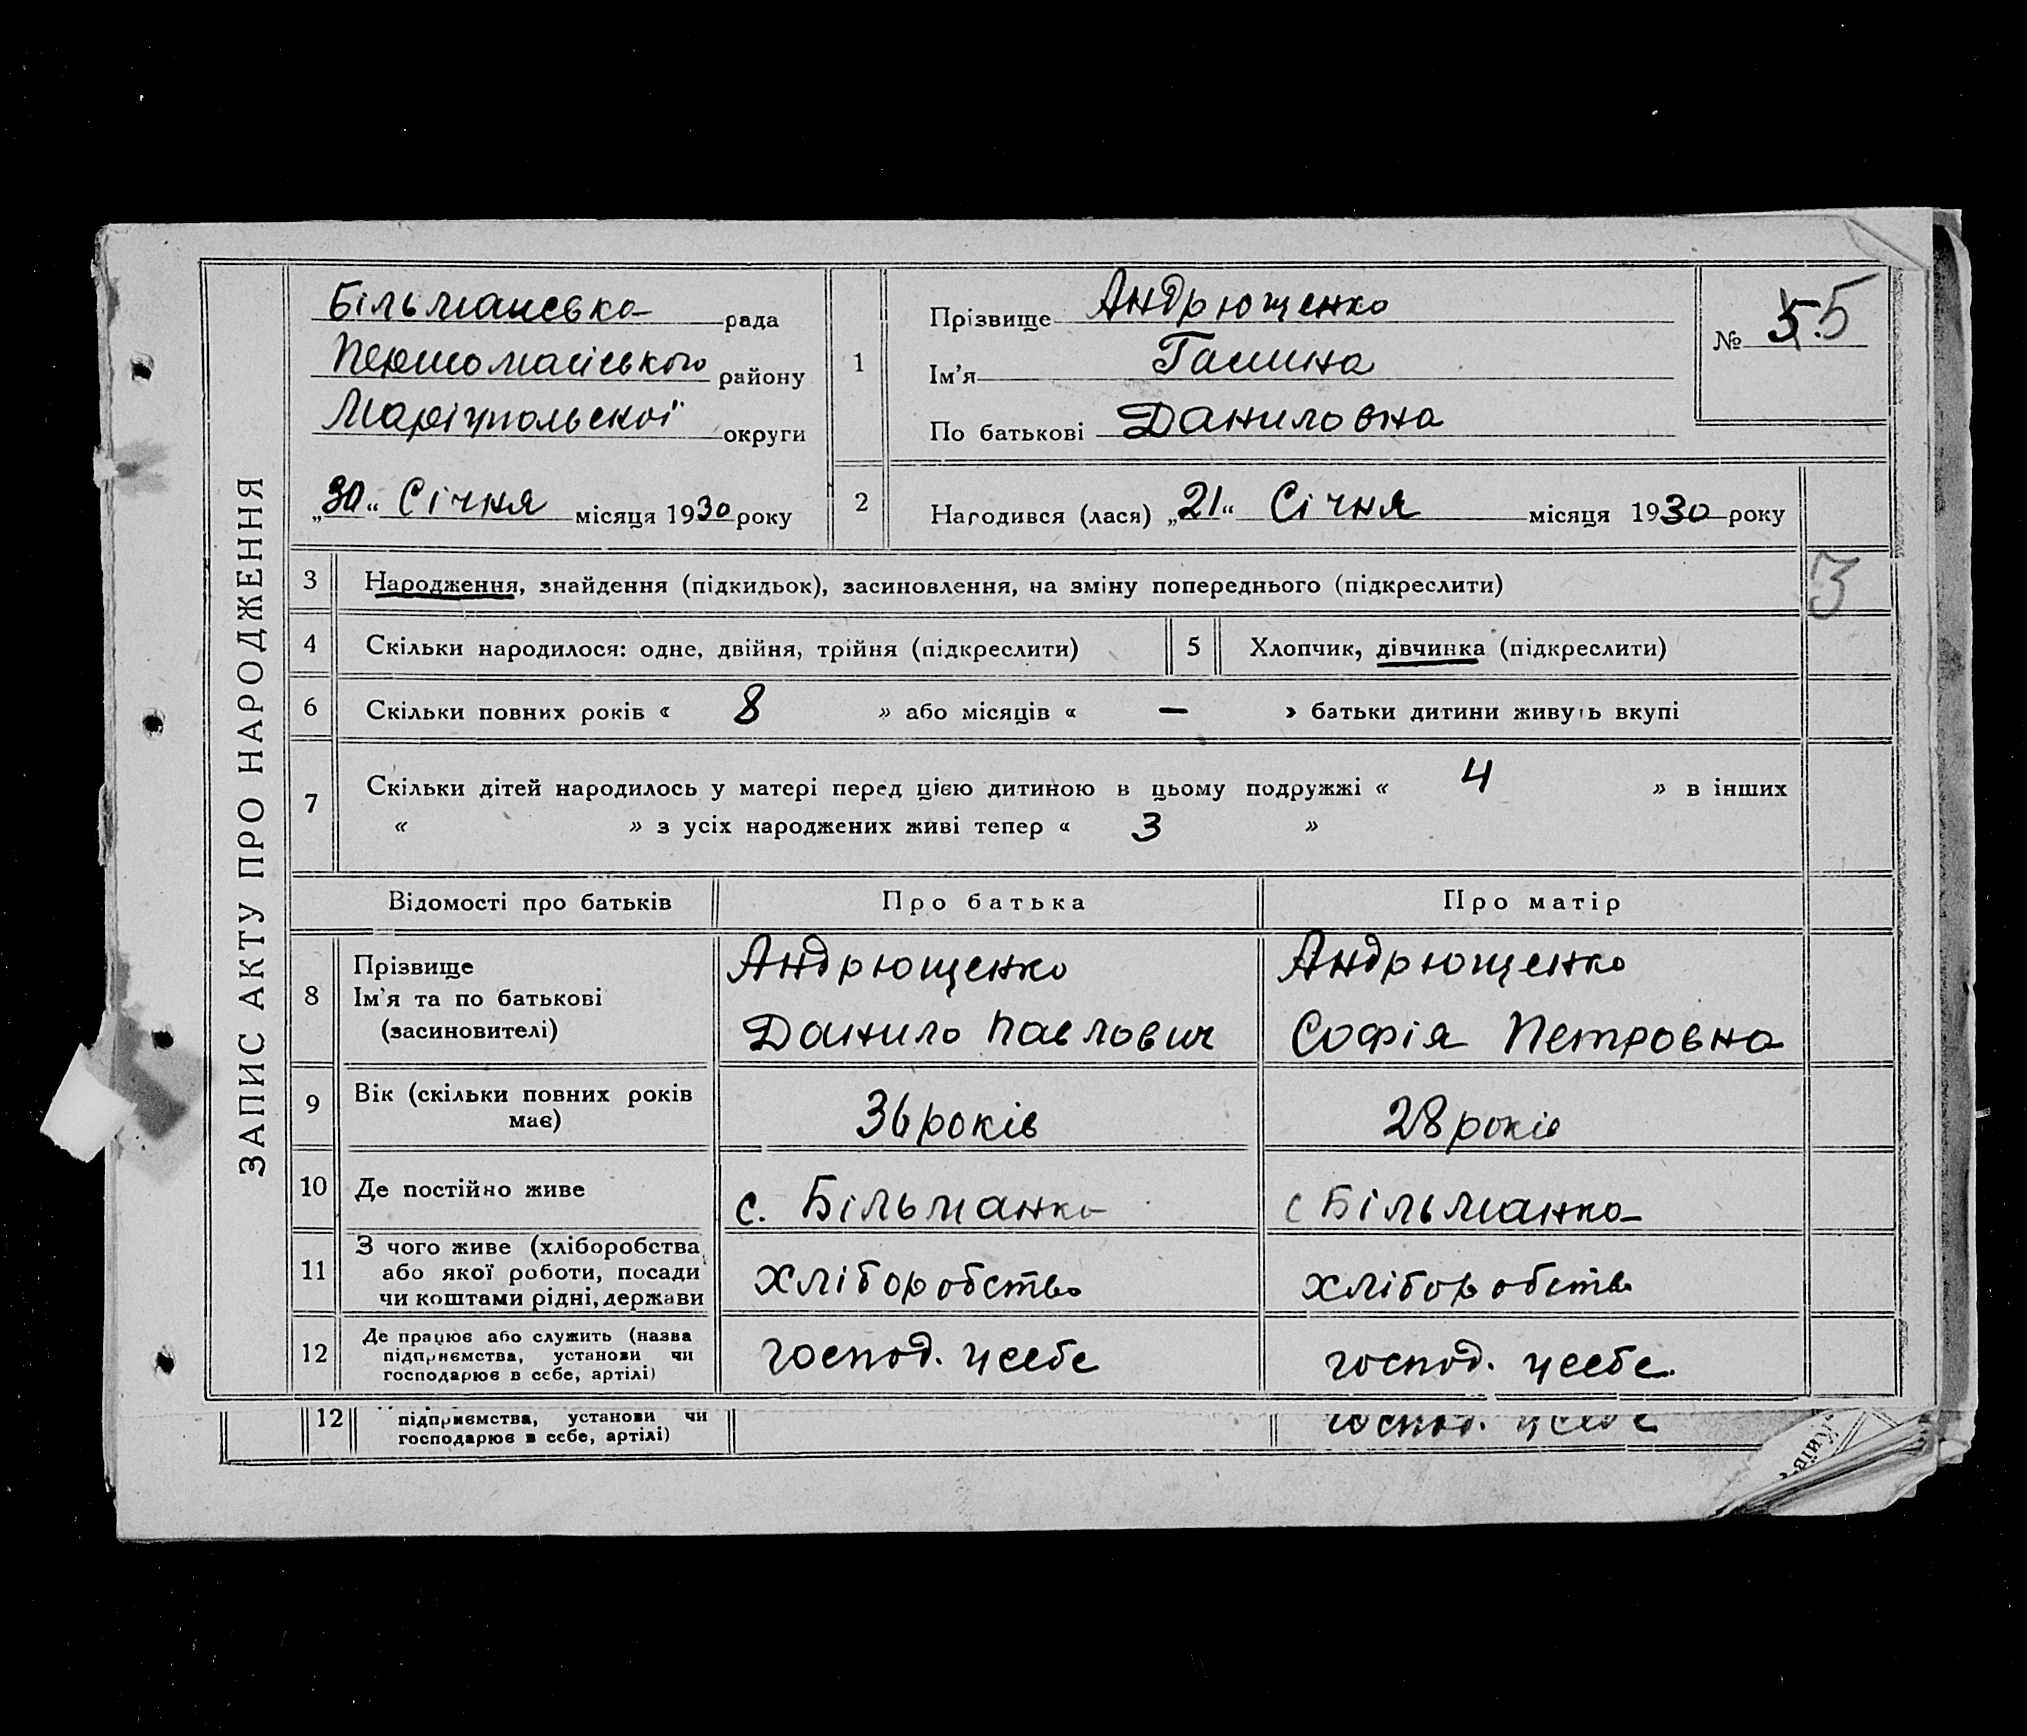 ЗАПИС АКТУ ПРО НАРОДЖЕННЯ
Більманська рада
Першомайського району
Маріупольської округи
„30“ Січня місяця 1930 року
1
Прізвище Андрющенко
Ім'я Галина
По батькові Даниловна
№ 5.5
2 Народився (лася) „21“ Січня місяця 1930 року
3 Народження, знайдення (підкидьок), засиновлення, на зміну попереднього (підкреслити)
3
4 Скільки народилося: одне, двійня, трійня (підкреслити) 5 Хлопчик, дівчинка (підкреслити)
6 Скільки повних років « 8 » або місяців « — » батьки дитини живуть вкупі
7 Скільки дітей народилось у матері перед цією дитиною в цьому подружжі « 4 » в інших
« » з усіх народжених живі тепер « 3 »
Відомості про батьків Про батька Про матір
8 Прізвище
Ім'я та по батькові
(засиновителі)
Андрющенко
Данило Павлович
Андрющенко
Софія Петровна
9 Вік (скільки повних років
має)
36 років
28 років
10 Де постійно живе с. Більманка с Більманка
11 З чого живе (хліборобства,
або якої роботи, посади
чи коштами рідні, держави
хліборобство
хліборобство
12 Де працює або служить (назва
підприємства, установи чи
господарює в себе, артілі)
господ. усебе
господ. усебе.
12 підприємства, установи чи
господарює в себе, артілі)
господ. усебе
Київ